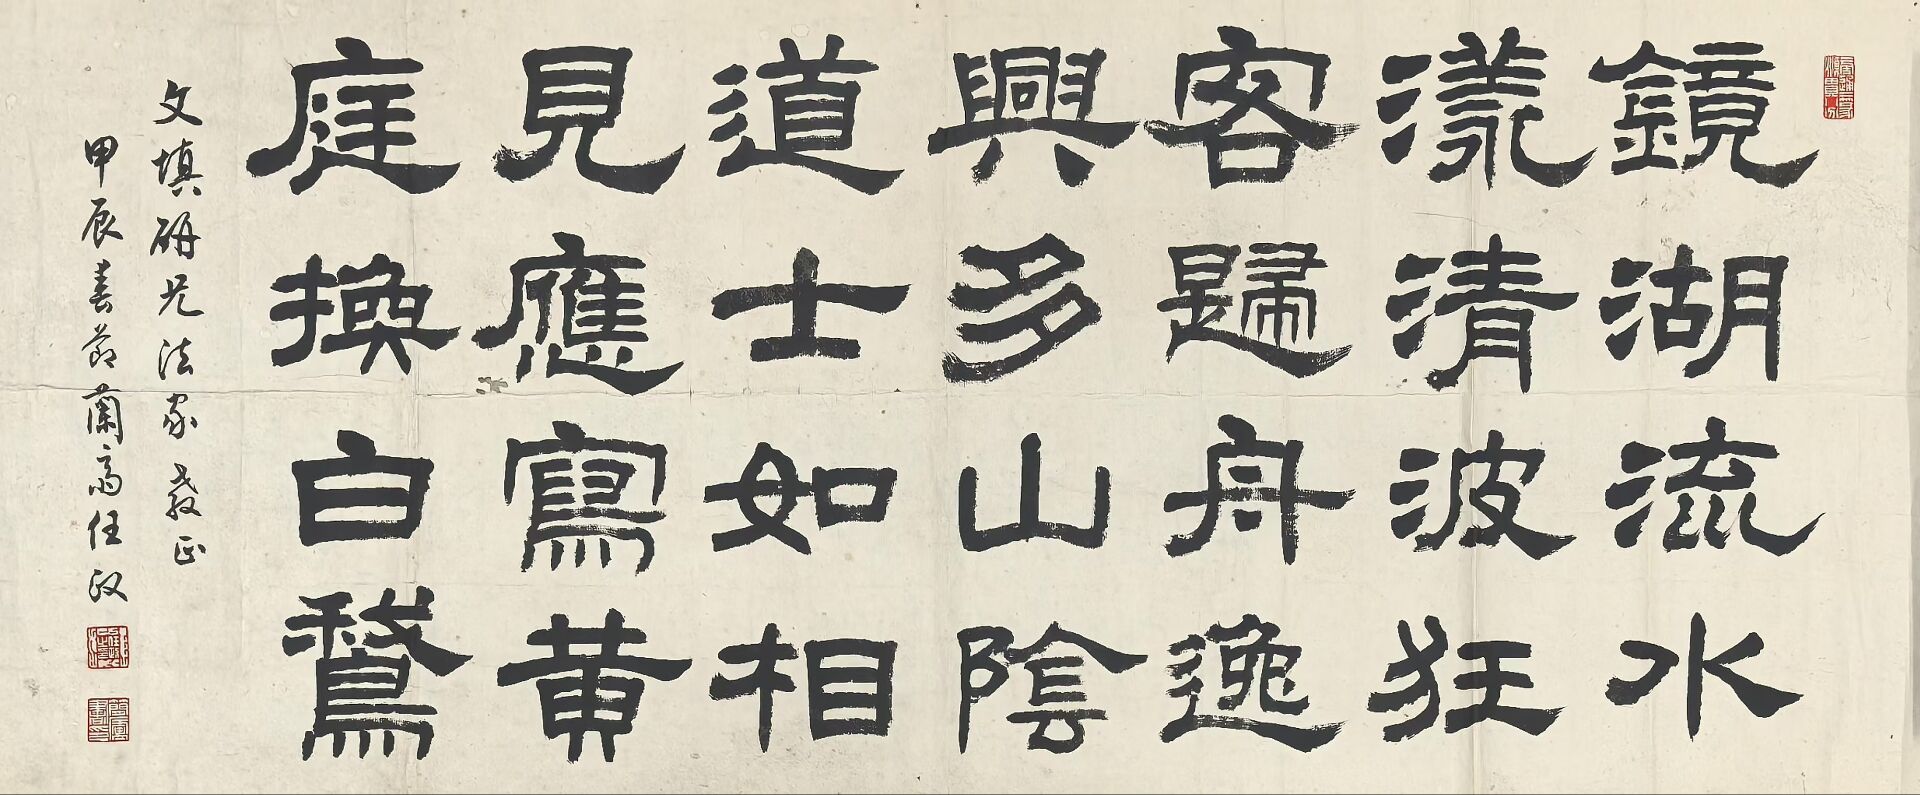 鏡湖流水
漾清波狂
客歸舟逸
興多山陰
道士如相
見應寫黄
庭換白鵞
文塡硏兄法家教正
甲辰春節蘭斋任政